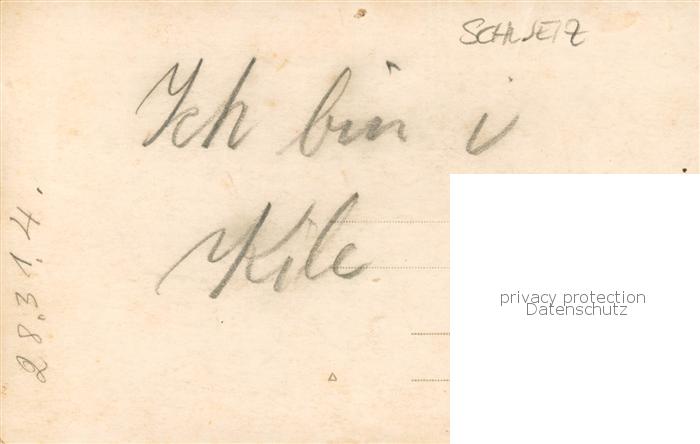 SCHWEIZ
Ich bin i
Kile
28.31.4.
privacy protection
Datenschutz